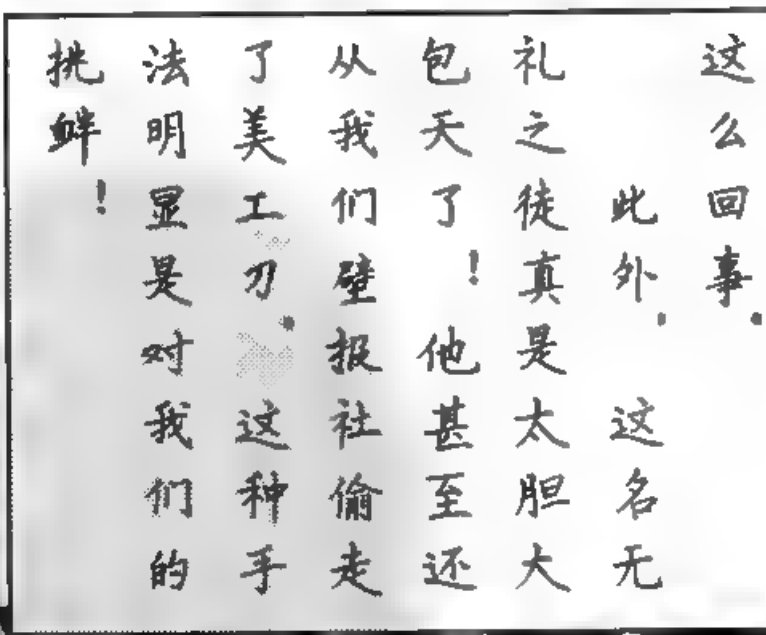 这么回事.
此外, 这名无
礼之徒真是太胆大
包天了! 他甚至还
从我们壁报社偷走
了美工刀. 这种手
法明显是对我们的
挑衅!